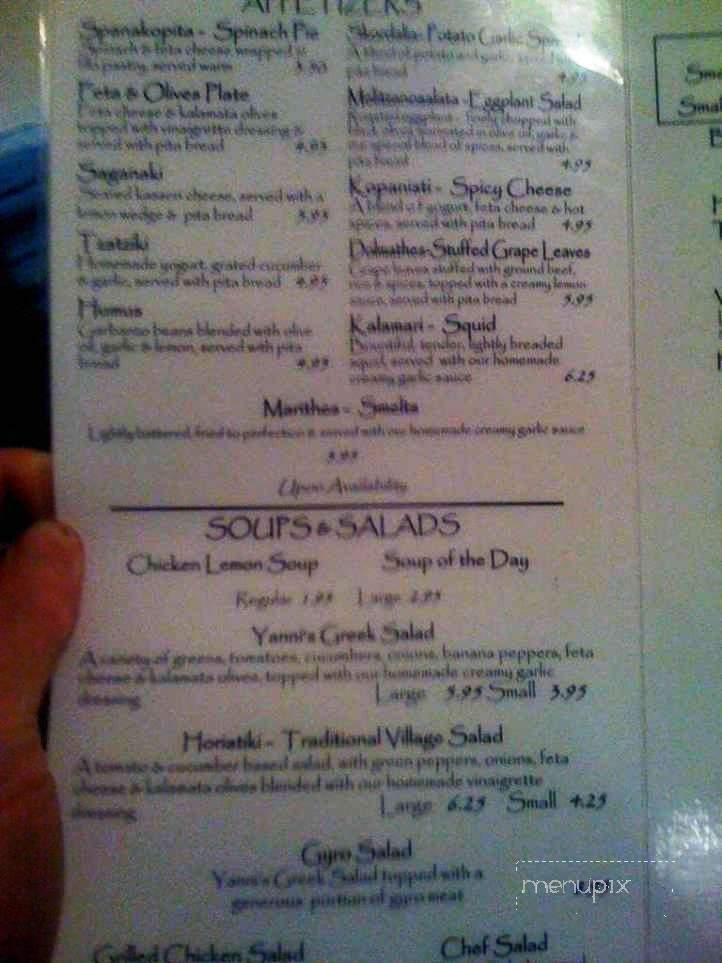 APPETIZERS
Spanakopita - Spinach Pie
Spinach & feta cheese wrapped in
filo pastry, served warm 5.50
Feta & Olives Plate
Feta cheese & kalamata olives
topped with vinaigrette dressing &
served with pita bread 4.95
Saganaki
Seared kasseri cheese, served with a
lemon wedge & pita bread 5.95
Tzatziki
Homemade yogurt, grated cucumber
& garlic, served with pita bread 4.95
Humus
Garbanzo beans blended with olive
oil, garlic & lemon, served with pita
bread 4.95
Skordalia- Potato Garlic
A blend of potato and garlic,
pita bread 4.95
Melitzanosalata - Eggplant Salad
Roasted eggplant - finely chopped with
olive oil, garlic &
special blend of spices, served with
pita bread 4.95
Kopanisti - Spicy Cheese
A blend of yogurt, feta cheese & hot
spices, served with pita bread 4.95
Dolmathes-Stuffed Grape Leaves
Grape leaves stuffed with ground beef,
rice & spices, topped with a creamy lemon
sauce, served with pita bread 5.95
Kalamari - Squid
Bountiful, tender, lightly breaded
squid, served with our homemade
creamy garlic sauce 6.25
Marithes - Smelts
Lightly battered, fried to perfection & served with our homemade creamy garlic sauce
5.95
Upon Availability
SOUPS & SALADS
Chicken Lemon Soup Soup of the Day
Regular 1.95 Large 2.95
Yanni's Greek Salad
A variety of greens, tomatoes, cucumbers, onions, banana peppers, feta
cheese & kalamata olives, topped with our homemade creamy garlic
dressing Large 5.95 Small 3.95
Horiatiki - Traditional Village Salad
A tomato & cucumber based salad, with green peppers, onions, feta
cheese & kalamata olives blended with our homemade vinaigrette
dressing Large 6.25 Small 4.25
Gyro Salad
Yanni's Greek Salad topped with a
generous portion of gyro meat
menupix
Grilled Chicken Salad Chef Salad